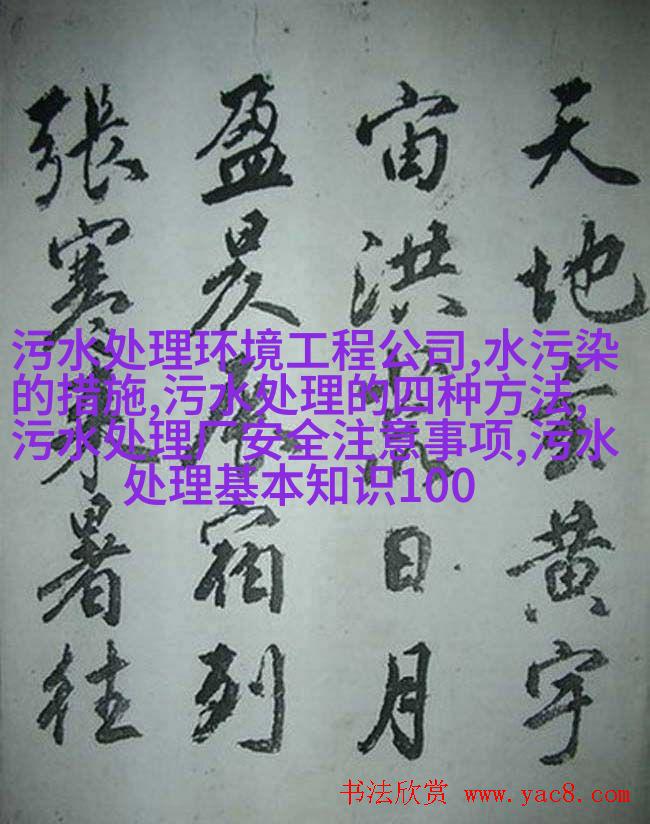 天地玄黄宇
宙洪荒日月
盈昃辰宿列
張寒來暑往
污水处理环境工程公司,水污染
的措施,污水处理的四种方法,
污水处理厂安全注意事项,污水
处理基本知识100
书法欣赏 www.yac8.com